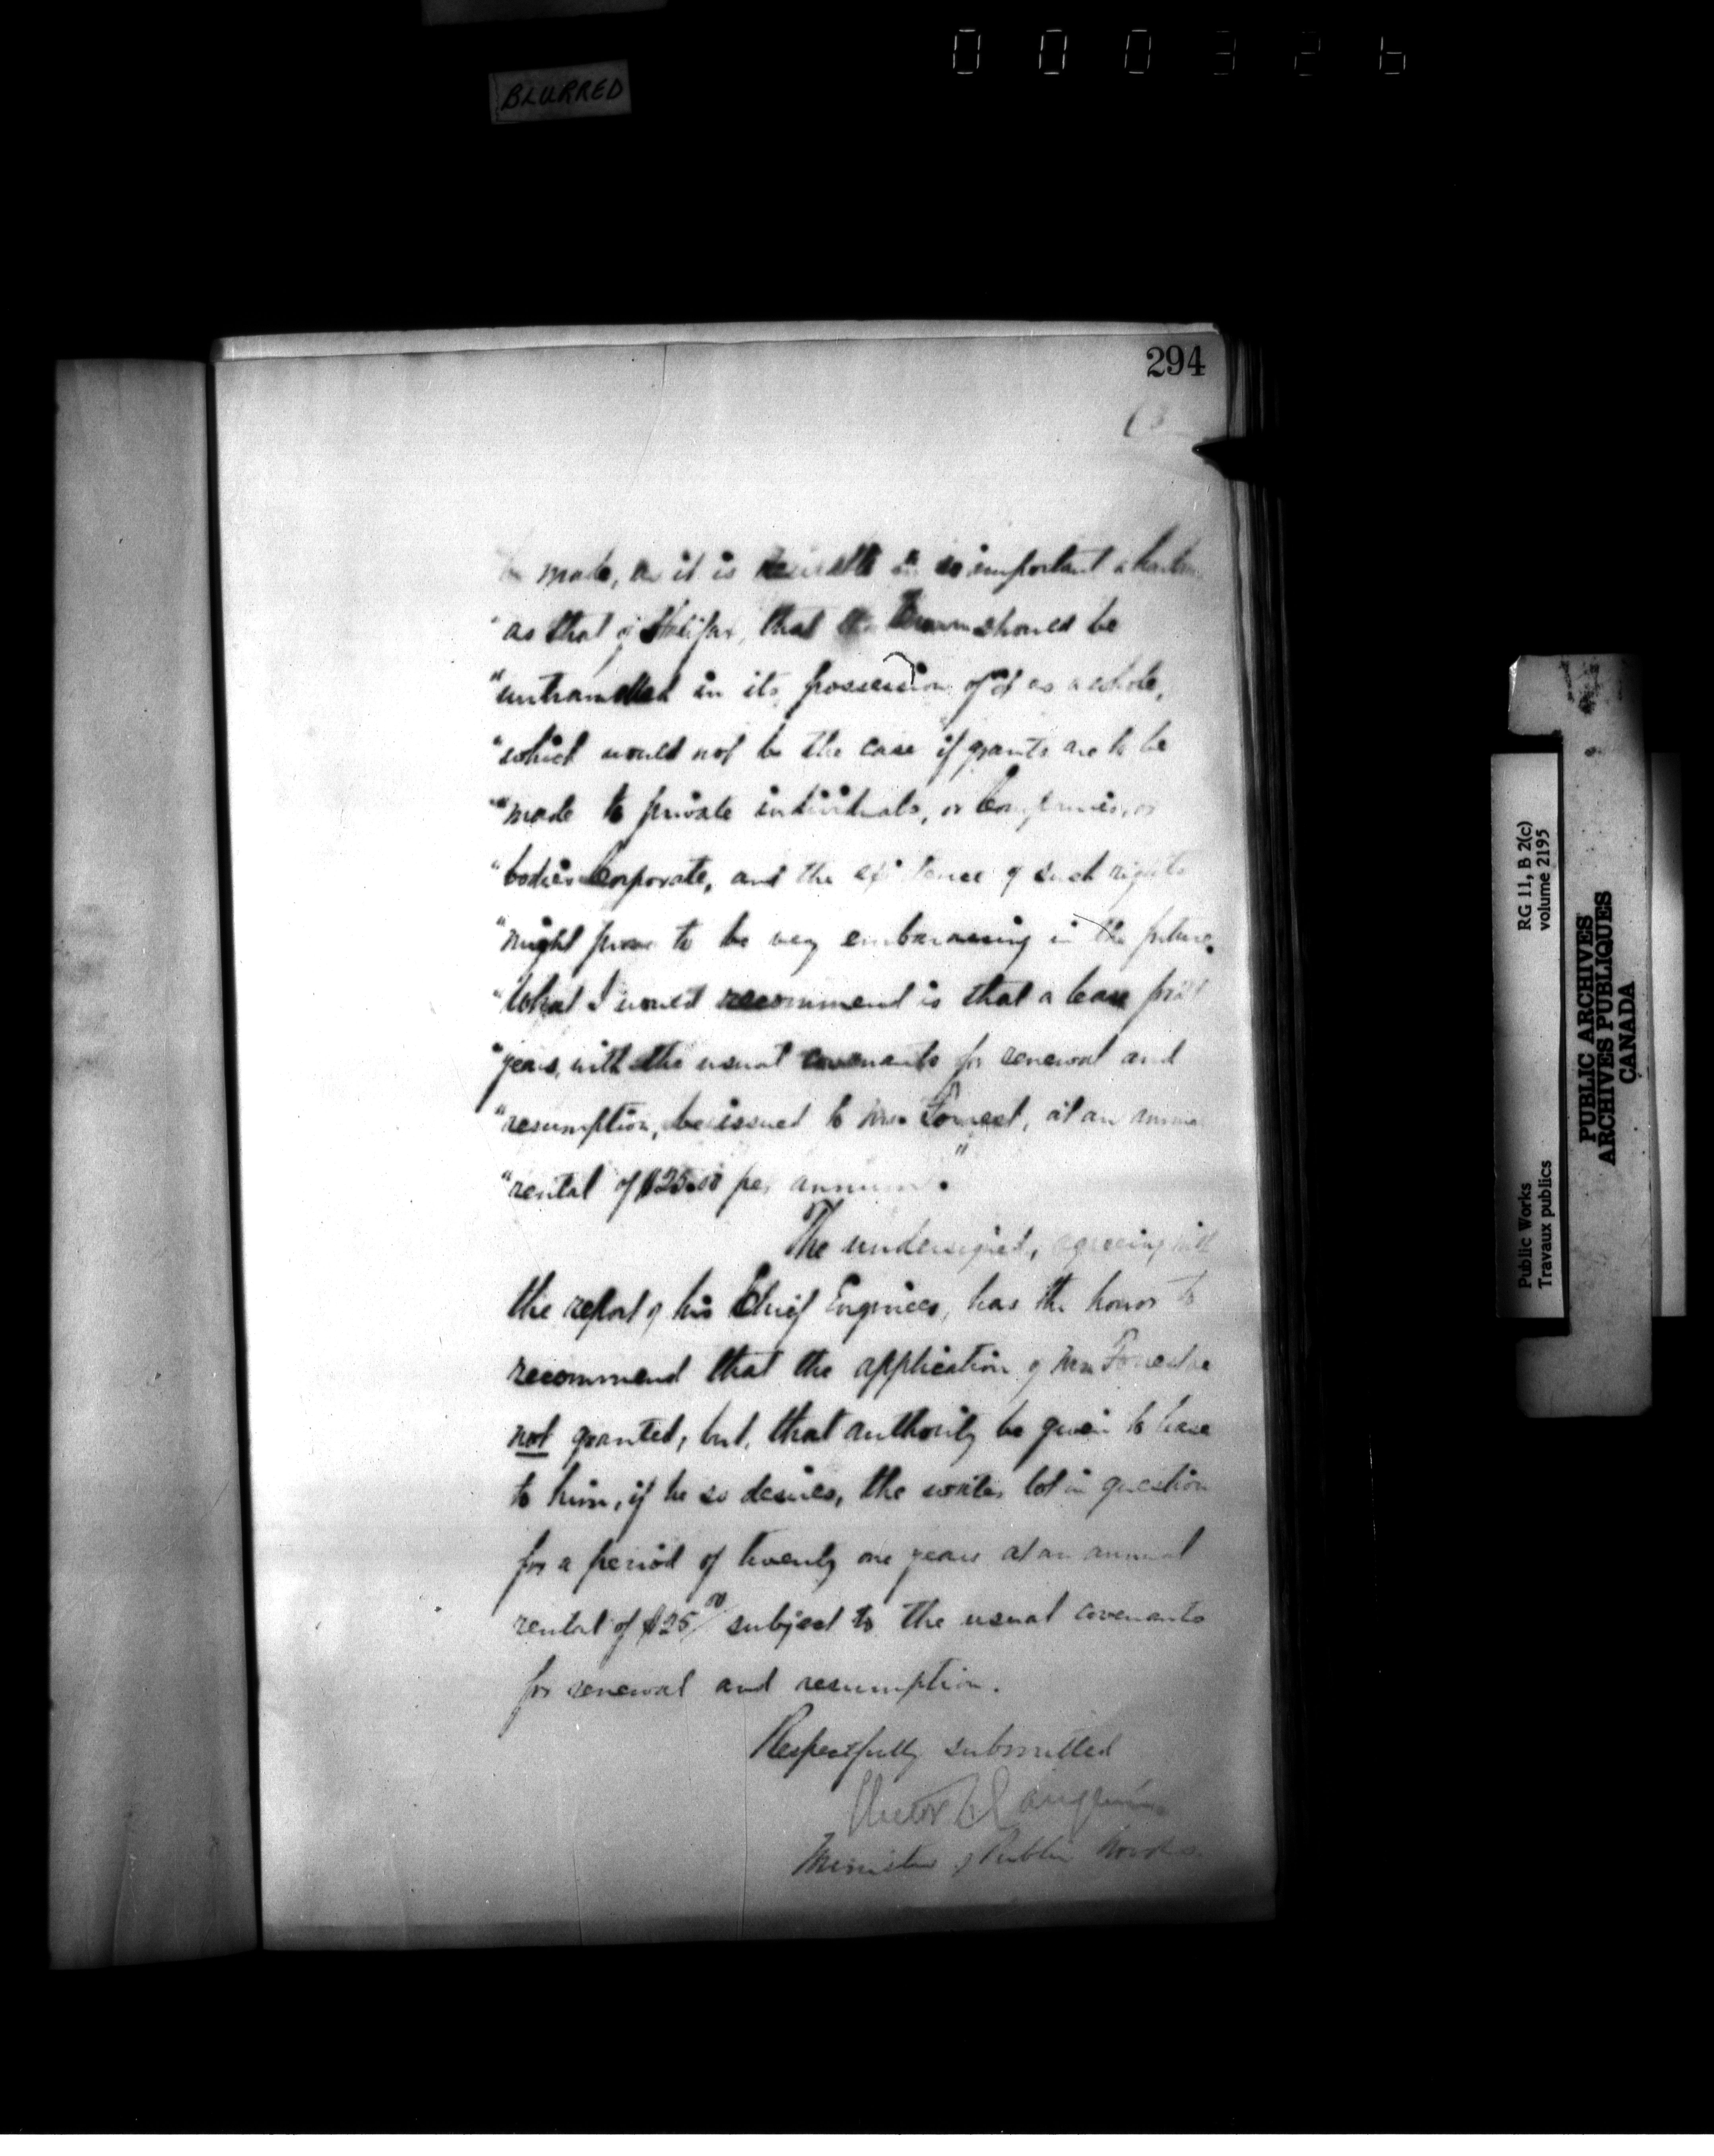 000326
BLURRED
294
(3
be made, as it is desirable in so important a harbour
"as that of Halifax, that the Crown should be
"untramelled in its possession of it as a whole,
"which would not be the case if grants are to be
"made to private individuals, or Companies, or
"bodies Corporate, and the existence of such rights
"might prove to be very embarrassing in the future.
"What I would recommend is that a lease for 21
"years, with the usual covenants for renewal and
"resumption, be issued to Forrest, at an annual
"rental of $25.00 per annum."
The undersigned, agreeing with
the report of his Chief Engineer, has the honor to
recommend that the application of Forrest be
not granted, but, that authority be given to lease
to him, if he so desires, the water lot in question
for a period of twenty one years at an annual
rental of $25/00 subject to the usual covenants
for renewal and resumption.
Respectfully submitted
Hector L. Langevin
Minister of Public Works
RG 11, B 2(c)
volume 2195
Public Works
Travaux publics
PUBLIC ARCHIVES
ARCHIVES PUBLIQUES
CANADA